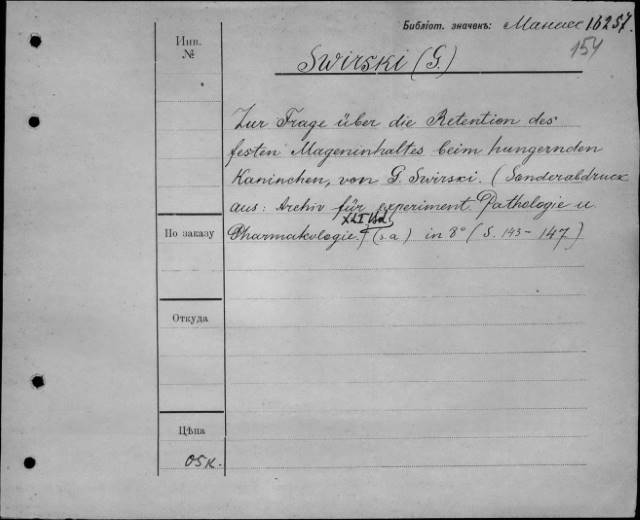 Библіот. значекъ: Манасс 16257.
154
Инв.
№
Swirski (G.)
Zur Frage über die Retention des
festen Mageninhaltes beim hungernden
Kaninchen, von G. Swirski. (Sonderabdruck
aus: Archiv für experiment. Pathologie u.
XLI Bd.
Pharmakologie. (s. a.) in 8° (S. 143-147)
По заказу
Откуда
Цѣна
05к.